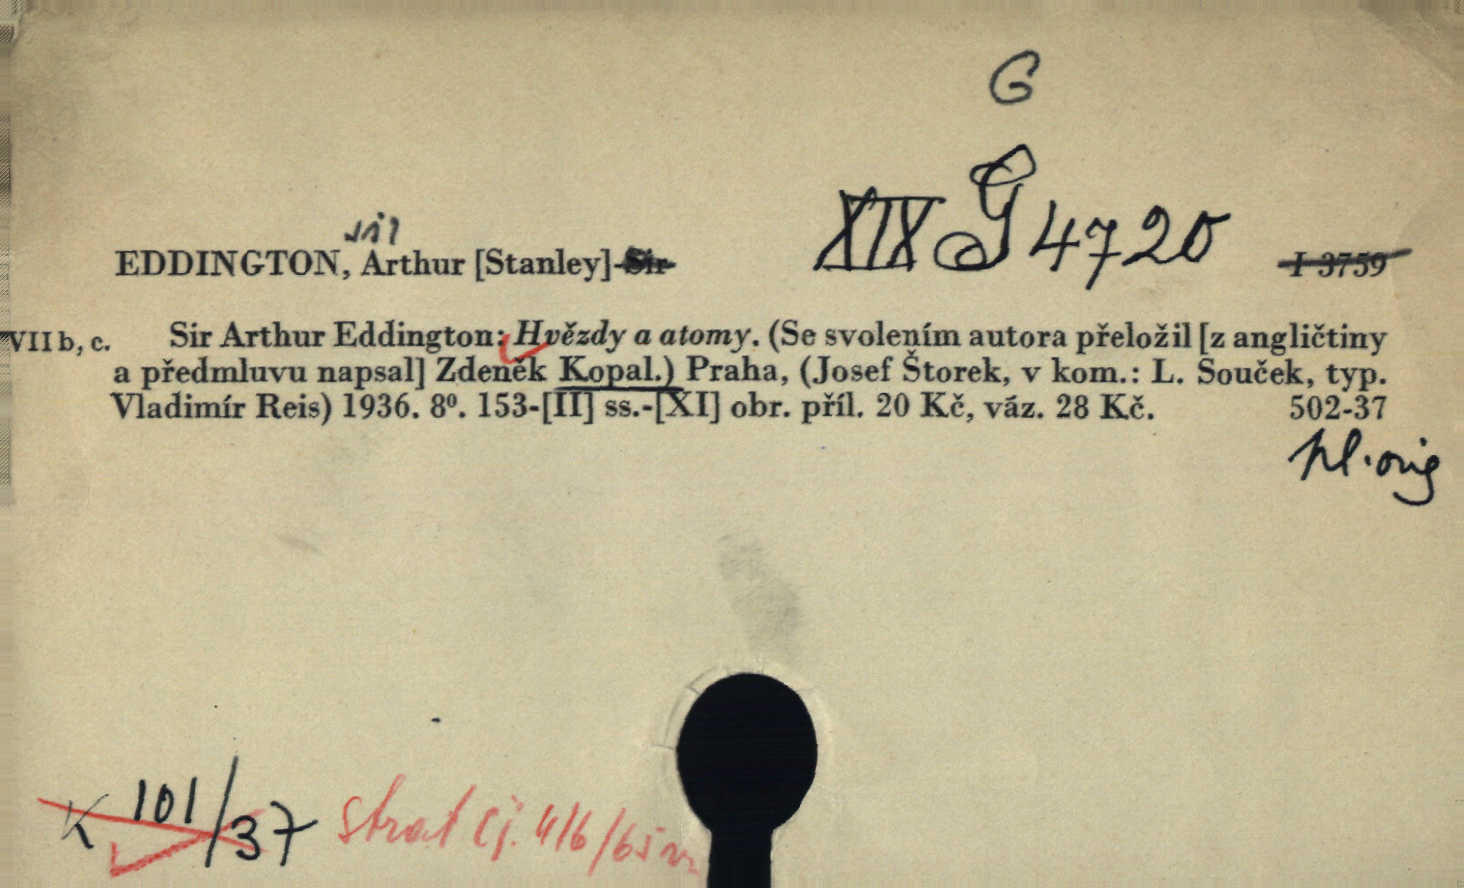 G
XIX G 4720
sir
EDDINGTON, Arthur [Stanley] Sir
I 3759
VII b, c. Sir Arthur Eddington: Hvězdy a atomy. (Se svolením autora přeložil [z angličtiny
a předmluvu napsal] Zdeněk Kopal.) Praha, (Josef Štorek, v kom.: L. Souček, typ.
Vladimír Reis) 1936. 8º. 153-[II] ss.-[XI] obr. příl. 20 Kč, váz. 28 Kč. 502-37
hl. orig
K 101/37 strat čj. 416/65